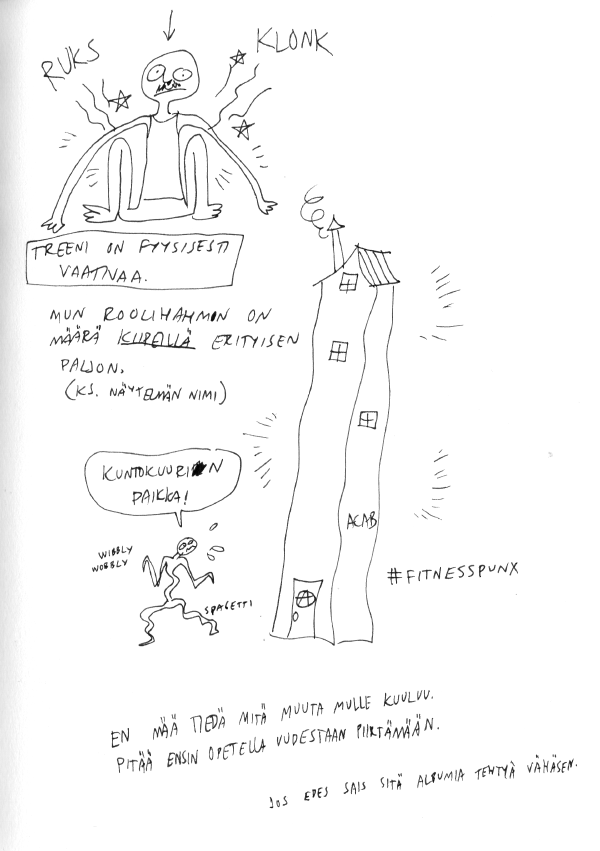 RUKS
KLONK
TREENI ON FYYSISESTI
VAATIVAA.
MUN ROOLIHAHMON ON
MÄÄRÄ KIIPEILLÄ ERITYISEN
PALJON.
(KS. NÄYTELMÄN NIMI)
KUNTOKUURIN
PAIKKA!
WIBBLY
WOBBLY
SPAGETTI
ACAB
A
#FITNESSPUNX
EN MÄÄ TIEDÄ MITÄ MUUTA MULLE KUULUU.
PITÄÄ ENSIN OPETELLA UUDESTAAN PIIRTÄMÄÄN.
JOS EDES SAIS SITÄ ALBUMIA TEHTYÄ VÄHÄSEN.